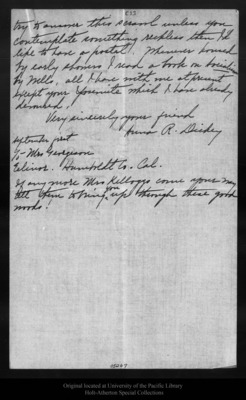 try to answer this scrawl unless you
contemplate something reckless then I'd
like to have a postal! Whenever housed
by early showers I read a book on
by Wells, all I have with me at present
except your Yosemite which I have already
devoured.
Very sincerely your friend
Anna R. Dickey
September first
To Mrs Georgeson
Humboldt Co. Cal.
If any more Mrs Kelloggs come your way
tell them to bring you up through these good
woods!
Original located at University of the Pacific Library
Holt-Atherton Special Collections